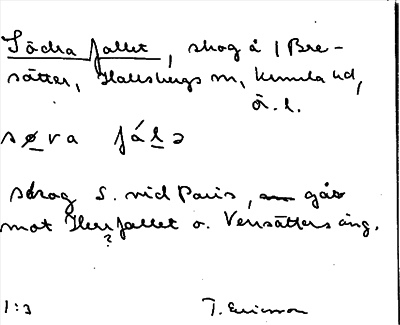 Södra fallet, skog å 1 Bre-
sätter, Hallsbergs sn, Kumla hd,
Ö. l.
søra fálə
skog S. vid Paris, går
mot Herrfallet o. Vensätters äng.
?
1:3 T. Ericsson